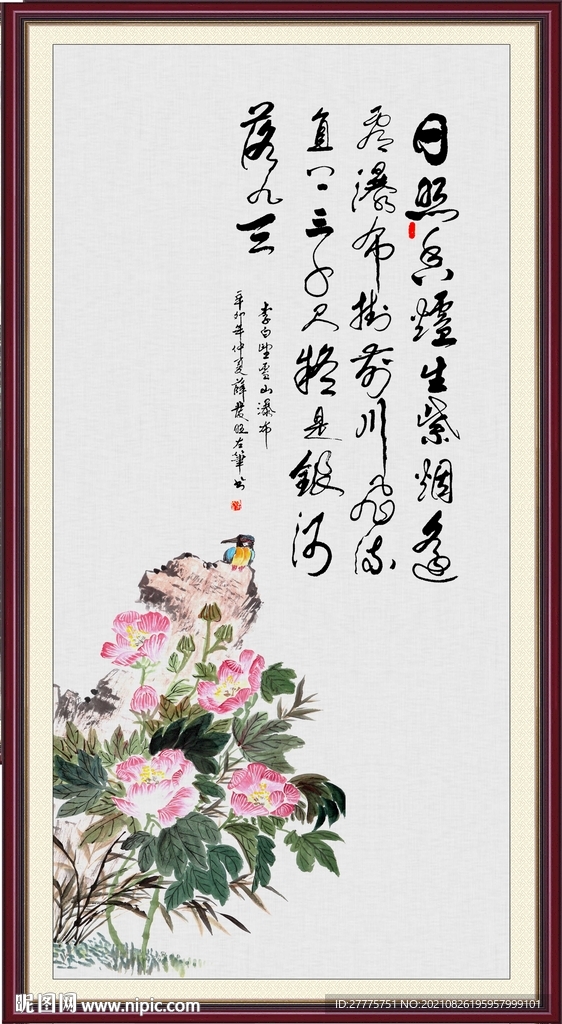 日照香爐生紫烟遙
看瀑布掛前川飛流
直下三千尺疑是銀河
落九天
李白望廬山瀑布
辛卯年仲夏薛左筆書
昵图网 www.nipic.com
ID:27775751 NO:20210826195957999101